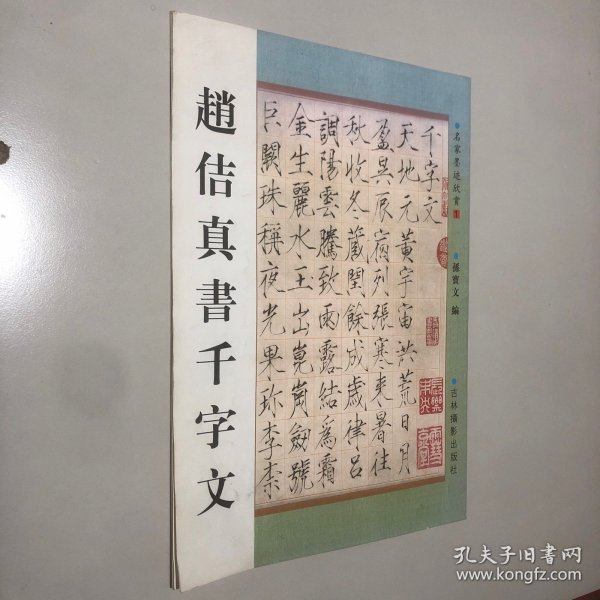 趙佶真書千字文
名家墨迹欣賞1
孫寶文 編
吉林攝影出版社
千字文
天地元黄宇宙洪荒日月
盈昃辰宿列張寒来暑往
秋收冬蔵閏餘成歲律吕
調陽雲騰致雨露結為霜
金生麗水玉出崑岡劔號
巨闕珠稱夜光果珍李柰
孔夫子旧书网
www.kongfz.com